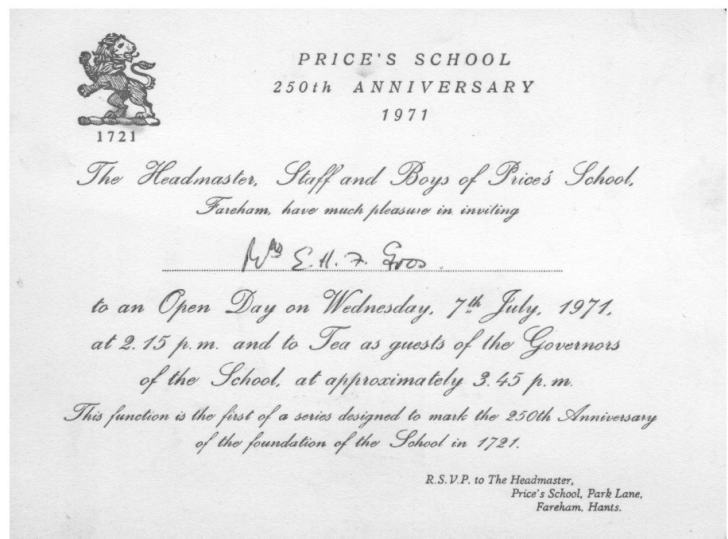 1721
PRICE'S SCHOOL
250th ANNIVERSARY
1971
The Headmaster, Staff and Boys of Price's School,
Fareham, have much pleasure in inviting
Mrs E. H.
to an Open Day on Wednesday, 7th July, 1971,
at 2.15 p.m. and to Tea as guests of the Governors
of the School, at approximately 3.45 p.m.
This function is the first of a series designed to mark the 250th Anniversary
of the foundation of the School in 1721.
R.S.V.P. to The Headmaster,
Price's School, Park Lane,
Fareham, Hants.